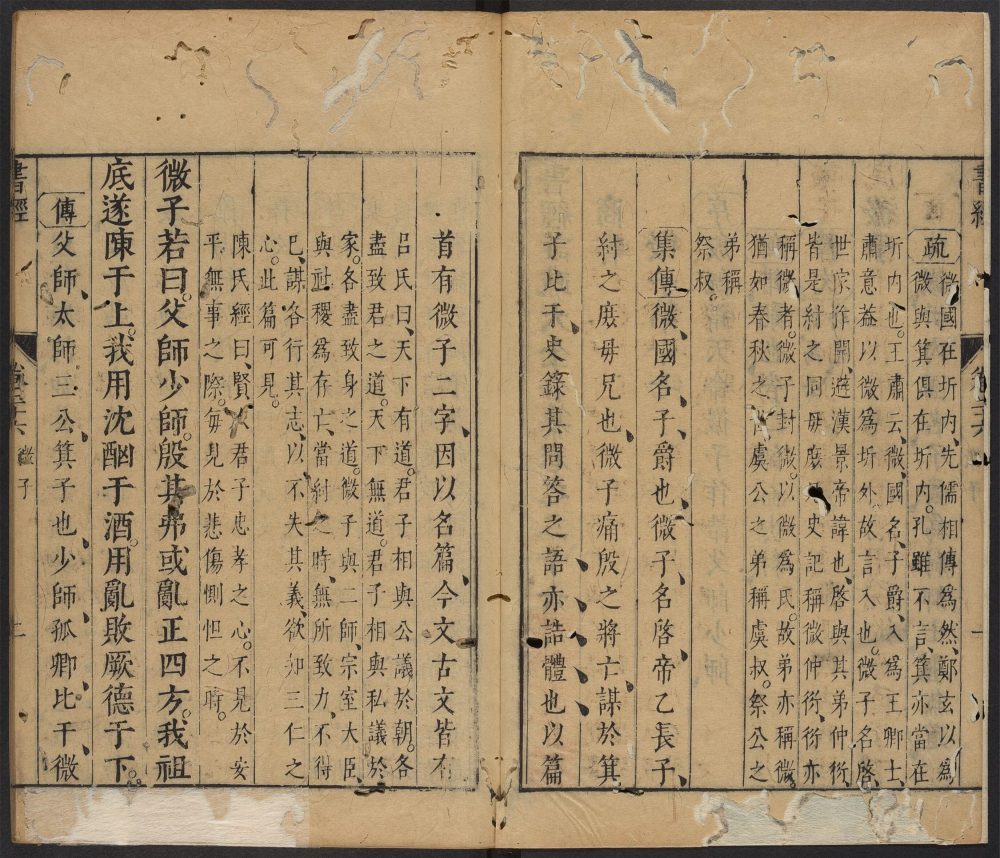 書經
疏
微國在圻内先儒相傳爲然鄭玄以爲
微與箕俱在圻内孔雖不言箕亦當在
圻内也王肅云微國名子爵入爲王卿士
肅意蓋以微爲圻外故言入也微子名啓
世家作開避漢景帝諱也啓與其弟仲衍
皆是紂之同母庶史記稱微仲衍衍亦
稱微者微子封微以微爲氏故弟亦稱微
猶如春秋之世虞公之弟稱虞叔祭公之
弟稱
祭叔
集傳微國名子爵也微子名啓帝乙長子
紂之庶母兄也微子痛殷之將亡謀於箕
子比干史錄其問答之語亦誥體也以篇
首有微子二字因以名篇今文古文皆有
呂氏曰天下有道君子相與公議於朝各
盡致君之道天下無道君子相與私議於
家各盡致身之道微子與二師宗室大臣
與社稷爲存亡當紂之時無所致力不得
已謀各行其志以不失其義欲知三仁之
心此篇可見
陳氏經曰賢人君子忠孝之心不見於安
平無事之際每見於悲傷惻怛之時
微子若曰父師少師殷其弗或亂正四方我祖
底遂陳于上我用沈酗于酒用亂敗厥德于下
傳父師太師三公箕子也少師孤卿比干微
書經
微子
二